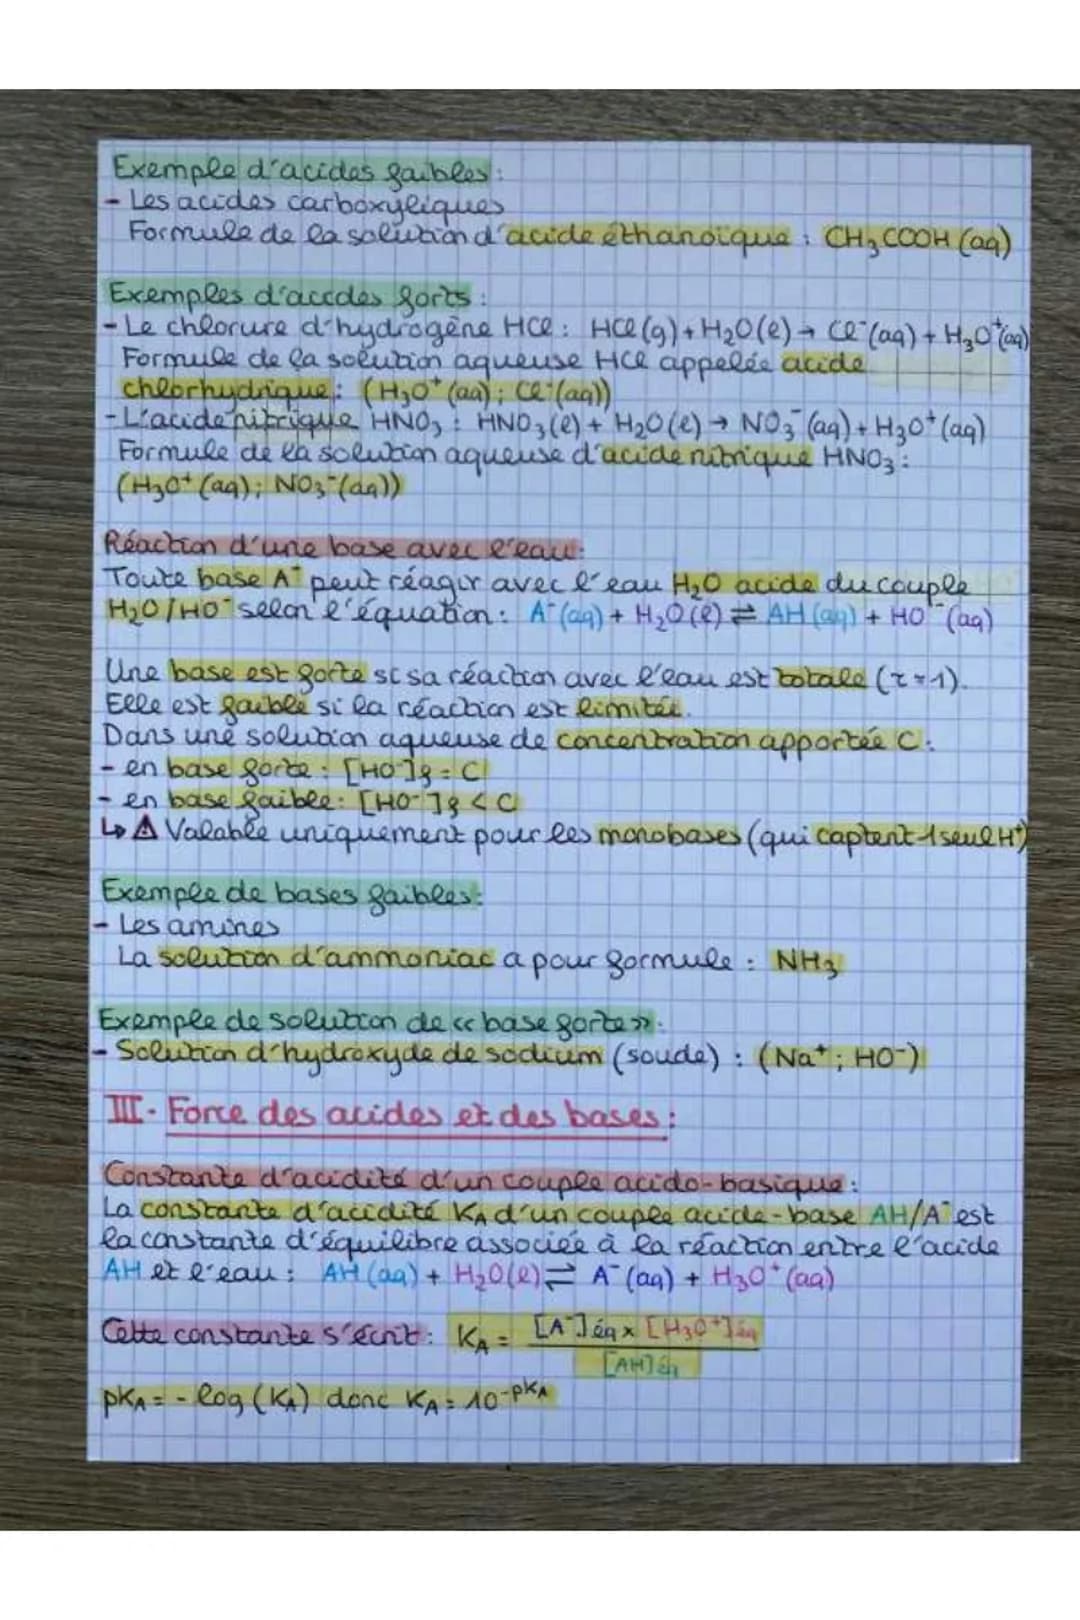 Exemple d'acides faibles :
- Les acides carboxyliques
Formule de la solution d'acide éthanoïque : CH₃COOH (aq)
Exemples d'acides forts :
- Le chlorure d'hydrogène HCl : HCl(g) + H₂O(l) → Cl⁻(aq) + H₃O⁺(aq)
Formule de la solution aqueuse HCl appelée acide
chlorhydrique : (H₃O⁺(aq) ; Cl⁻(aq))
- L'acide nitrique HNO₃ : HNO₃(l) + H₂O(l) → NO₃⁻(aq) + H₃O⁺(aq)
Formule de la solution aqueuse d'acide nitrique HNO₃ :
(H₃O⁺(aq) ; NO₃⁻(aq))
Réaction d'une base avec l'eau :
Toute base A⁻ peut réagir avec l'eau H₂O acide du couple
H₂O/HO⁻ selon l'équation : A⁻(aq) + H₂O(l) ⇌ AH(aq) + HO⁻(aq)
Une base est forte si sa réaction avec l'eau est totale (τ=1).
Elle est faible si la réaction est limitée.
Dans une solution aqueuse de concentration apportée C :
- en base forte : [HO⁻]f = C
- en base faible : [HO⁻]f < C
↳ ⚠ Valable uniquement pour les monobases (qui captent 1 seul H⁺)
Exemple de bases faibles :
- Les amines
La solution d'ammoniac a pour formule : NH₃
Exemple de solution de « base forte » :
- Solution d'hydroxyde de sodium (soude) : (Na⁺ ; HO⁻)
III - Force des acides et des bases :
Constante d'acidité d'un couple acido-basique :
La constante d'acidité KA d'un couple acide-base AH/A⁻ est
la constante d'équilibre associée à la réaction entre l'acide
AH et l'eau : AH(aq) + H₂O(l) ⇌ A⁻(aq) + H₃O⁺(aq)
Cette constante s'écrit : KA = [A⁻]éq × [H₃O⁺]éq
[AH]éq
pKA = - log (KA) donc KA = 10^-pKA